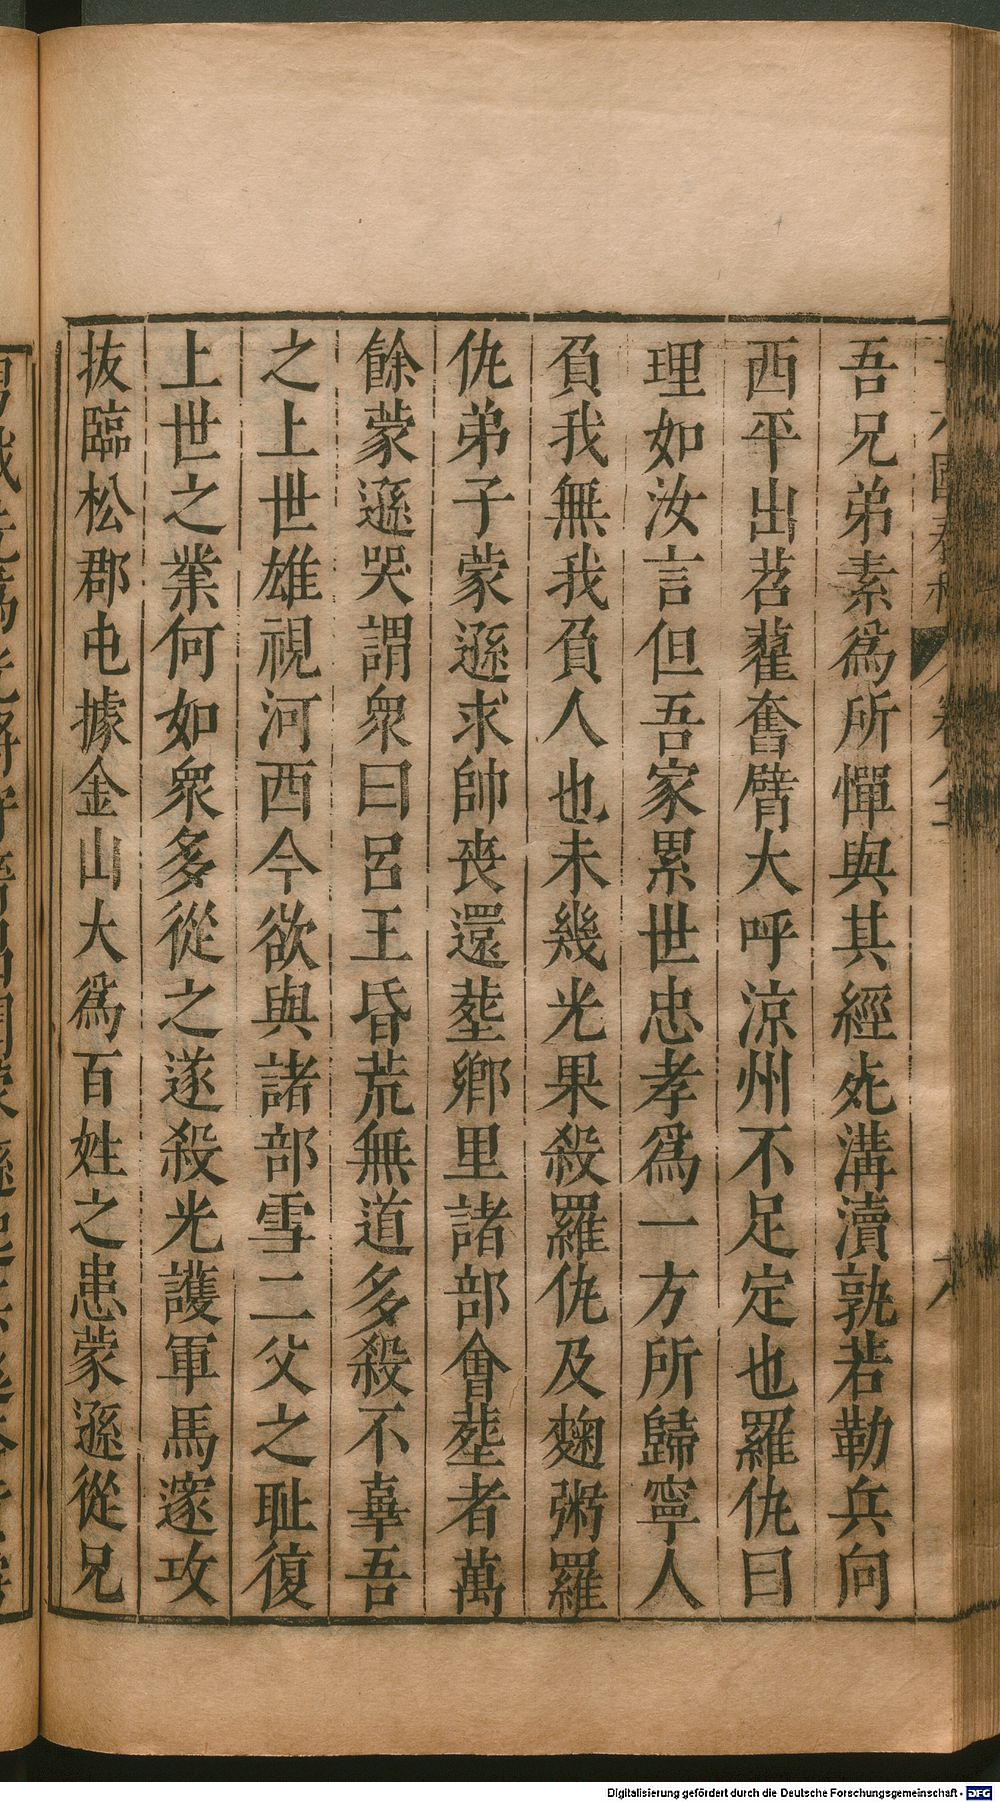 吾兄弟素爲所憚與其經死溝瀆孰若勒兵向
西平出苕藋奮臂大呼涼州不足定也羅仇曰
理如汝言但吾家累世忠孝爲一方所歸寧人
負我無我負人也未幾光果殺羅仇及麴粥羅
仇弟子蒙遜求帥喪還塟鄉里諸部會塟者萬
餘蒙遜哭謂衆曰呂王昏荒無道多殺不辜吾
之上世雄視河西今欲與諸部雪二父之耻復
上世之業何如衆多從之遂殺光護軍馬邃攻
拔臨松郡屯據金山大爲百姓之患蒙遜從兄
Digitalisierung gefördert durch die Deutsche Forschungsgemeinschaft - DFG